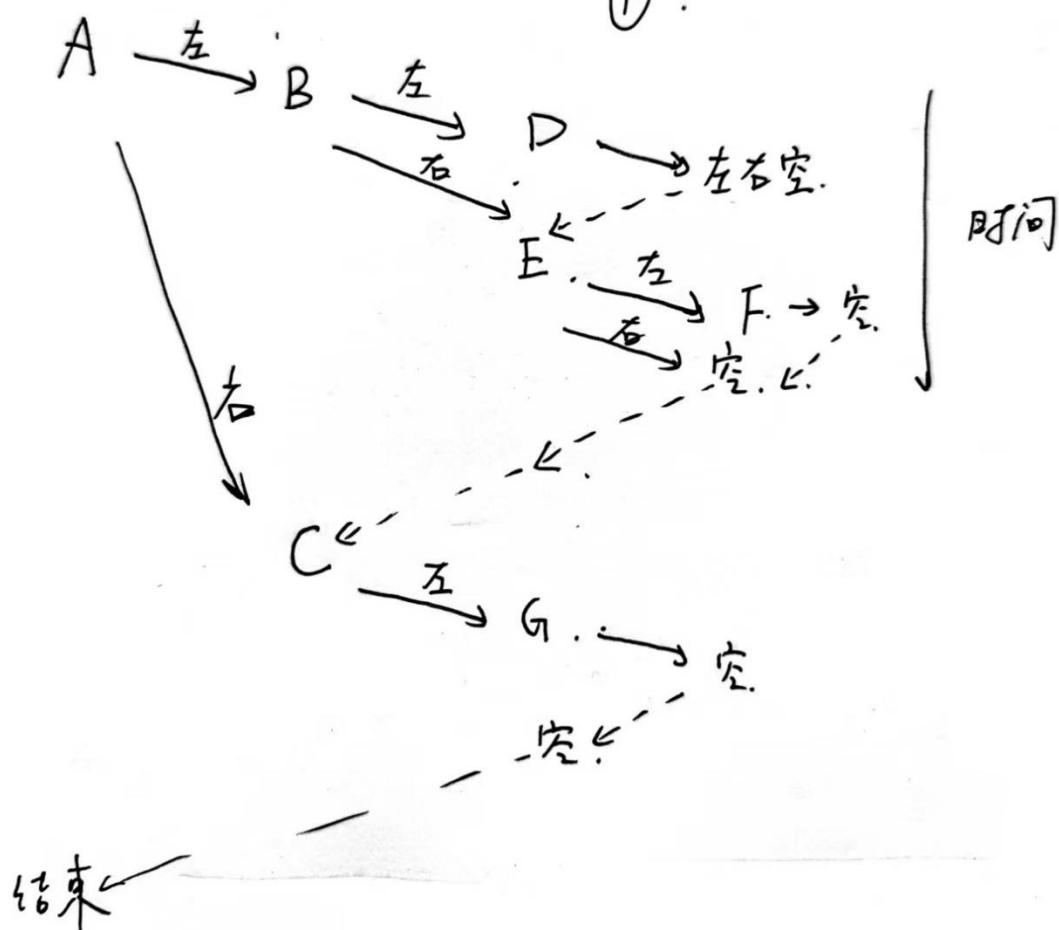 ①.
A 左 B 左 D 左右空.
右 E. 左 F. → 空.
右 空.
时间
右
C 左 G. 空.
空.
结束